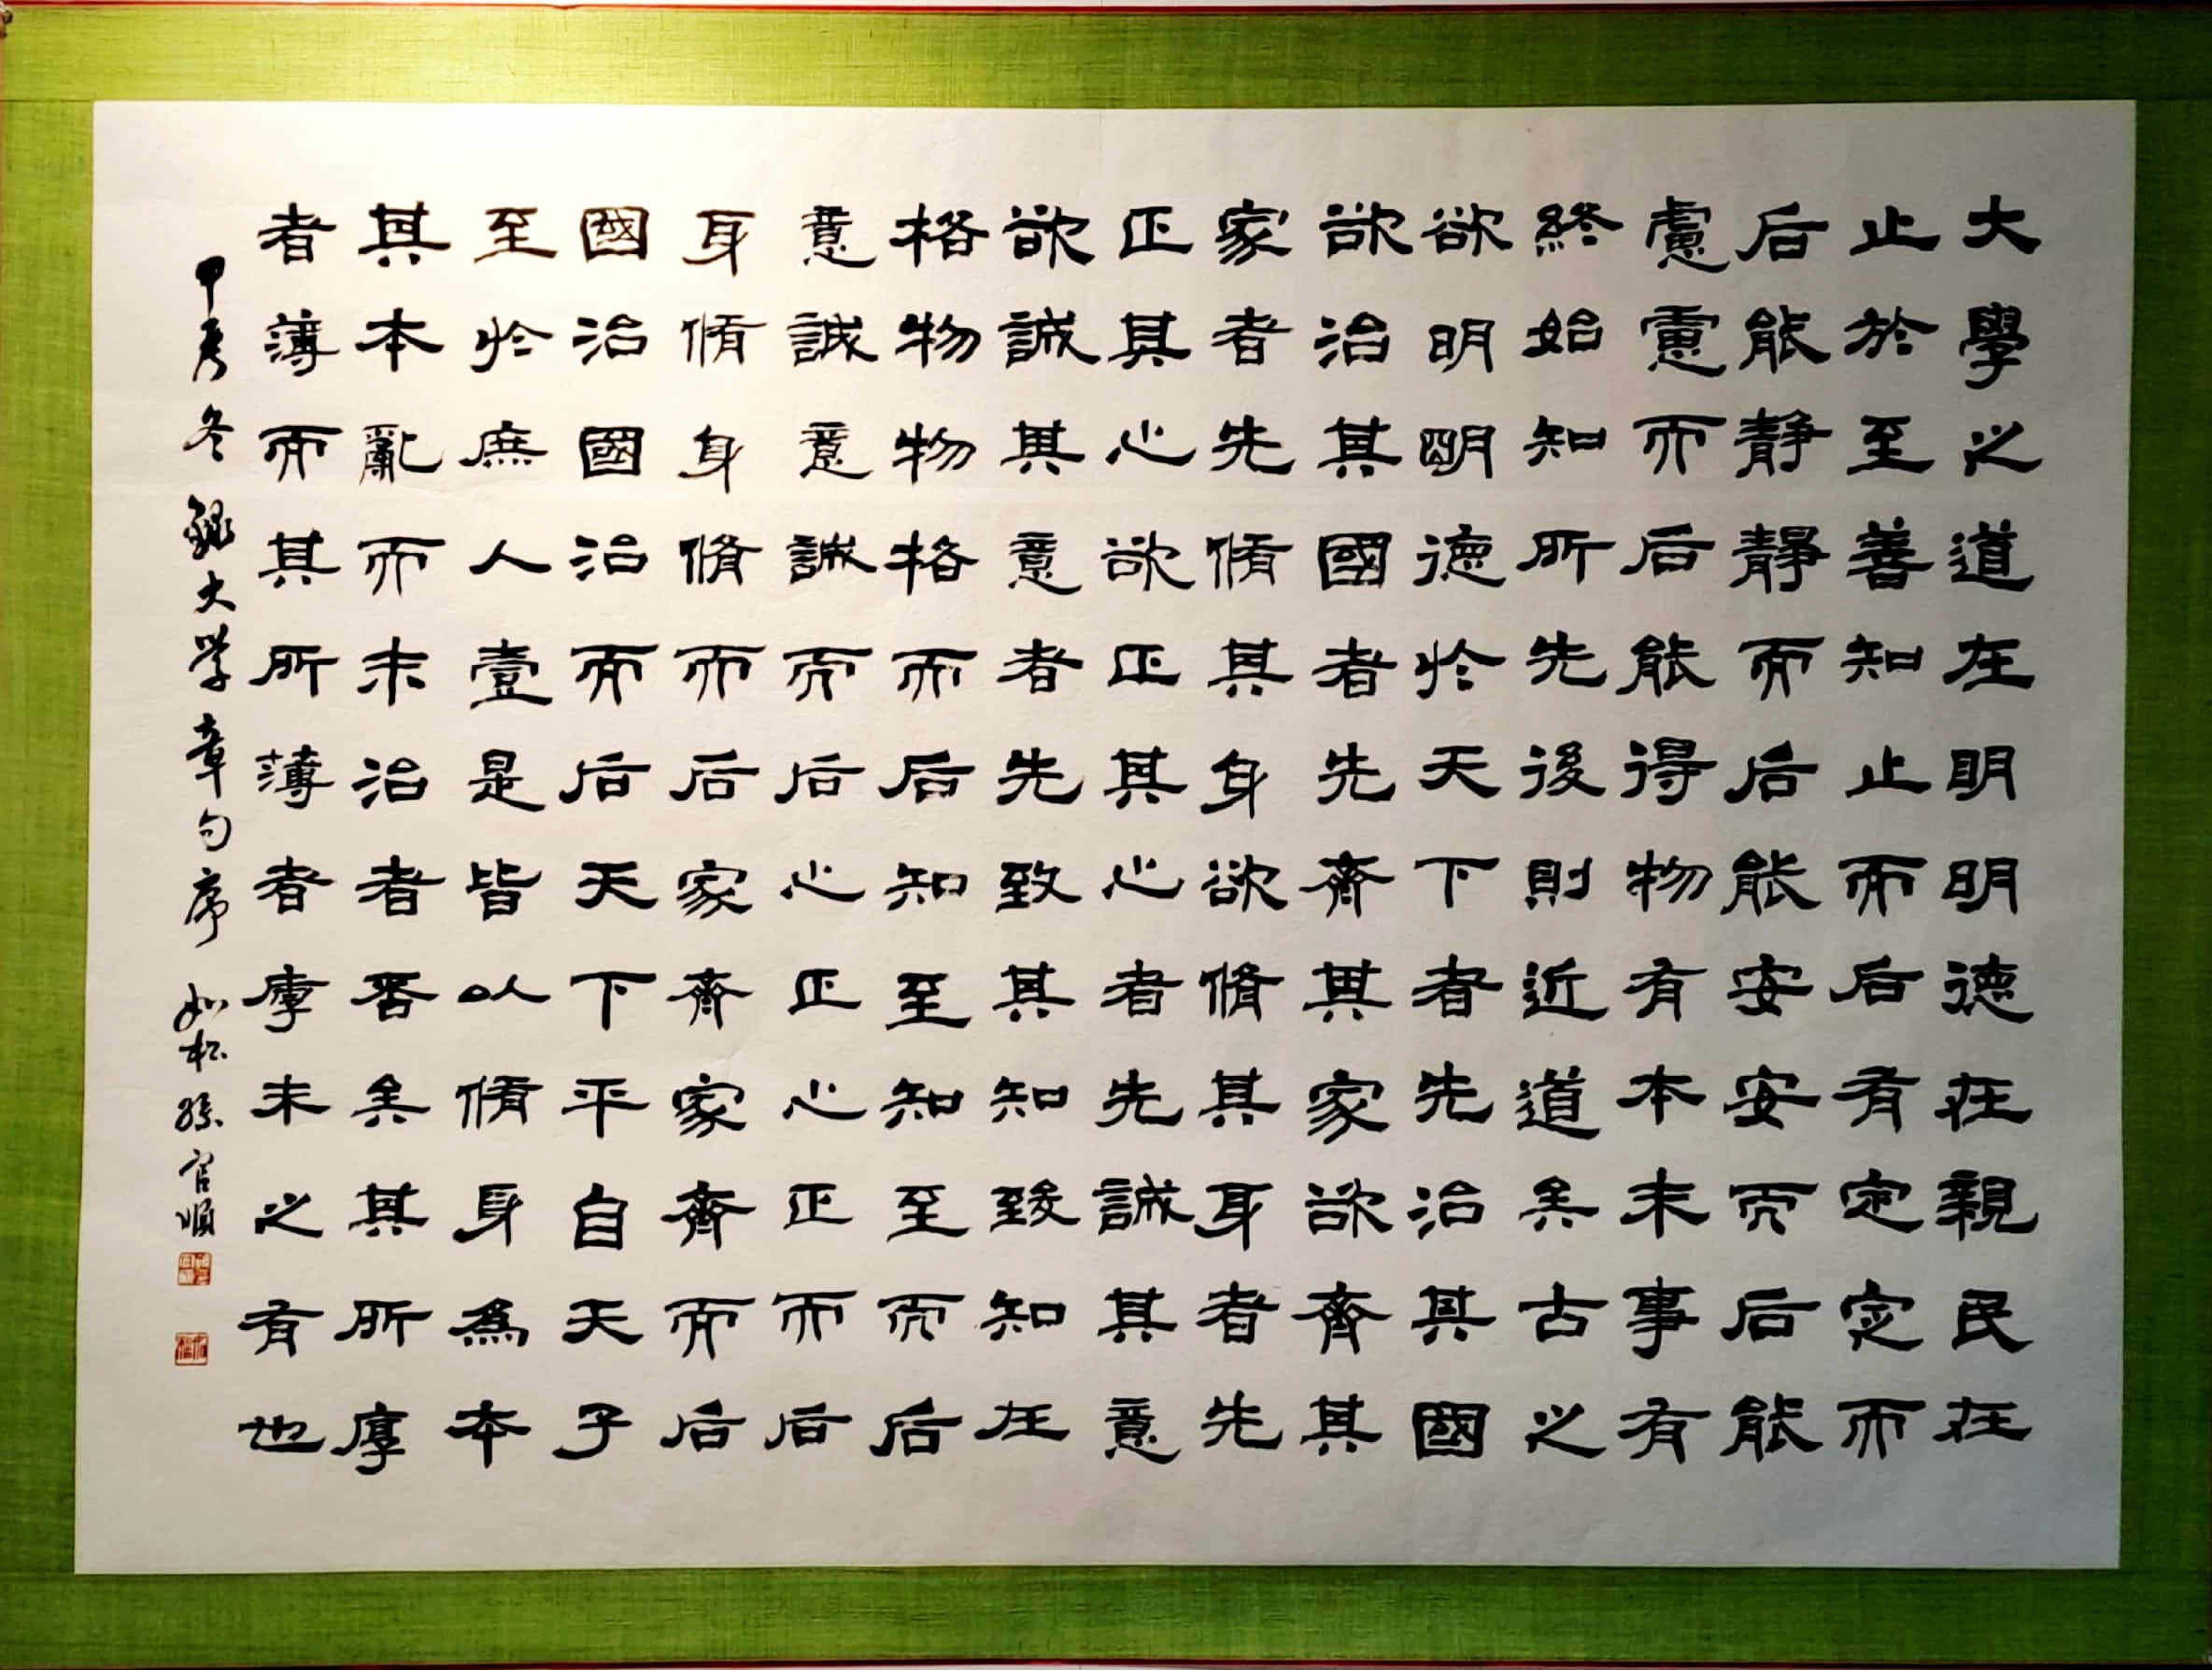 大學之道在明明德在親民在
止於至善知止而后有定定而
后能静靜而后能安安而后能
慮慮而后能得物有本末事有
終始知所先後則近道矣古之
欲明明德於天下者先治其國
欲治其國者先齊其家欲齊其
家者先脩其身欲脩其身者先
正其心欲正其心者先誠其意
欲誠其意者先致其知致知在
格物物格而后知至知至而后
意誠意誠而后心正心正而后
身脩身脩而后家齊家齊而后
國治國治而后天下平自天子
至於庶人壹是皆以脩身為本
其本亂而末治者否矣其所厚
者薄而其所薄者厚未之有也
甲辰冬錄大学章句序 如松孫官順